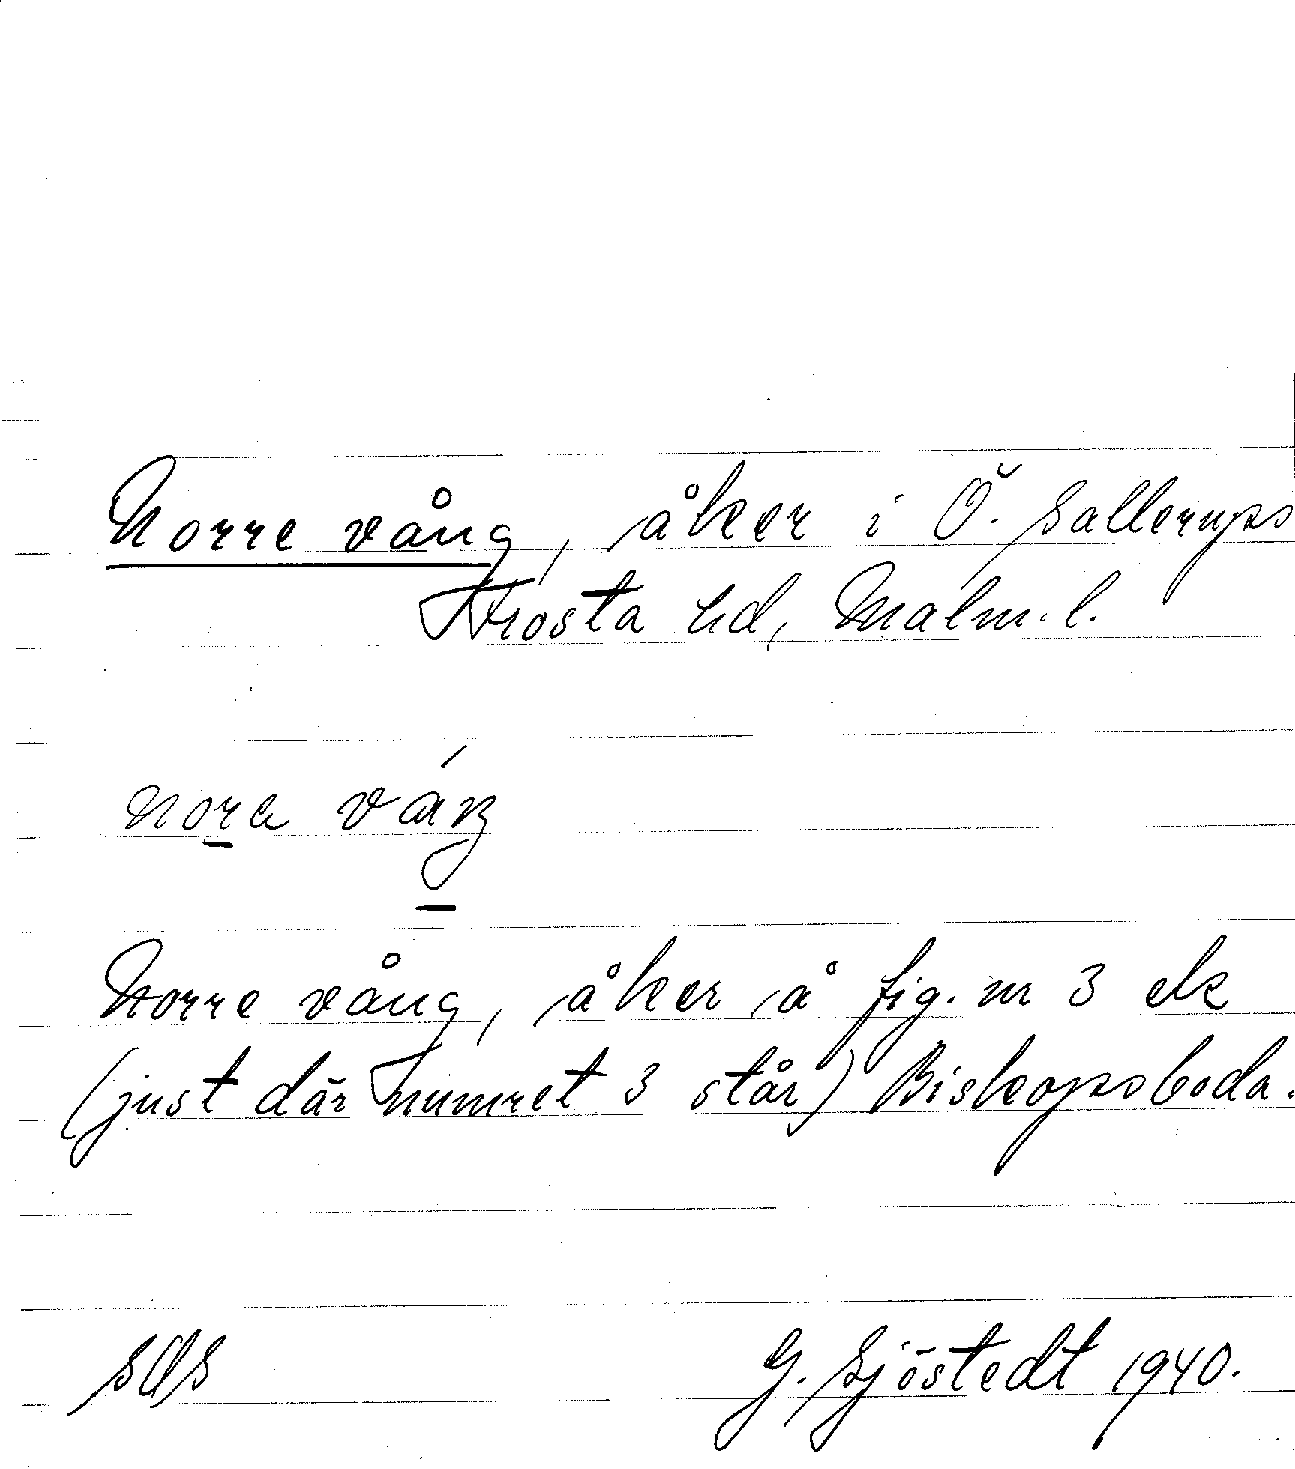 Norre vång, åker i Ö. Sallerups
Frosta hd, Malm. l.
nora váŋ
Norre vång, åker å fig. nr 3 ek
(just där numret 3 står) Biskopsboda.
SOS
G. Sjöstedt 1940.